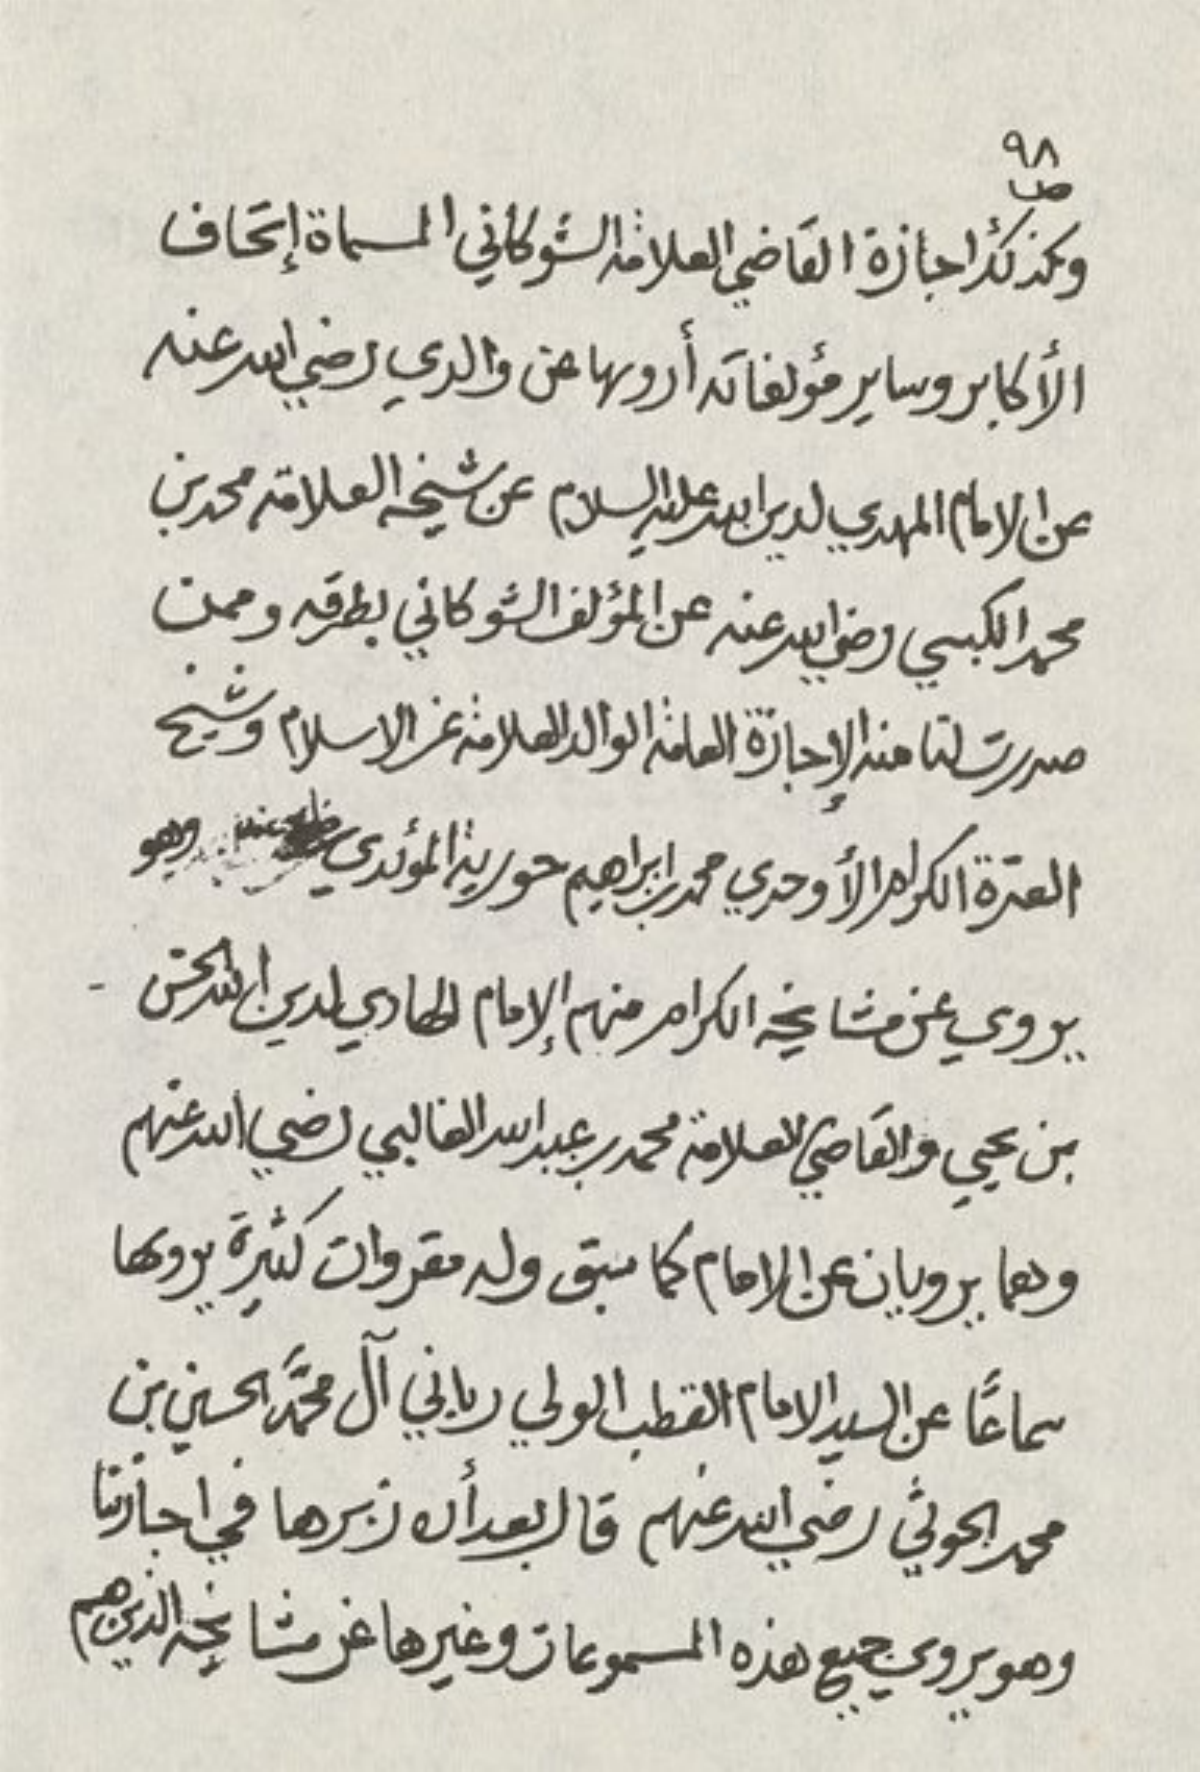 ٩٨
ص
وكذلك إجازة القاضي العلامة الشوكاني المسماة إتحاف
الأكابر وساير مؤلفاته أرويها عن والدي رضي الله عنه
عن الامام المهدي لدين الله عليه السلام عن شيخه العلامة محمد بن
محمد الكبسي رضي الله عنه عن المؤلف الشوكاني بطرقه وممن
صدرت لنا منه الإجازة العامة الوالد العلامة عز الاسلام وشيخ
العترة الكرام الأوحدي محمد بن ابراهيم حورية المؤيدي وهو
يروي عن مشايخه الكرام منهم الإمام الهادي لدين الله الحسن -
بن يحيي والقاضي العلامة محمد بن عبد الله الغالبي رضي الله عنهم
وهما يرويان عن الامام كما سبق وله مقروات كثيرة يرويها
سماعًا عن السيد الامام القطب الولي رباني آل محمَّد الحسين بن
محمد الحوثي رضي الله عنهم قال بعد أن زبرها في اجازتنا
وهو يروي جميع هذه المسموعات وغيرها عن مشايخه الذين هم